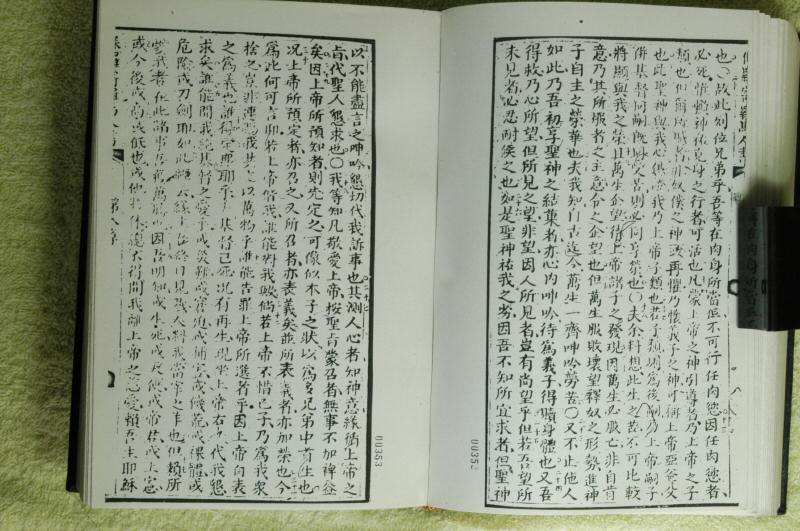 也○故此列位兄弟乎吾等在肉身所當應不可行任肉慾因任肉慾者
必死惟賴神祐克身之行者可活也凡蒙上帝之神引導者乃上帝之子
類也但爾所咸者非奴僕之神致再懼乃懷義子之神可稱上帝亞爸父
也此聖神與我心俱証我乃上帝子類也若子類則為後嗣乃上帝嗣子
併基督同嗣既同受苦則必同享榮也○夫余料想此生之苦不可比較
將顯與我之榮且萬生企望待上帝諸子之發現因萬生必服亡非自肯
意乃其所服者之主意令之企望也但萬生服敗壞望釋奴之形勢進神
子自主之榮華也夫我知自古迄今萬生一齊呻吟勞苦○又不止他人
如此乃吾初享聖神之結菓者亦心內呻吟待為義子得贖身體也又吾
得救乃心所望但所見之望非望因人所見者豈有尚望乎但若吾望所
未見者必忍耐俟之也如是聖神祐我之劣因吾不知所宜求者但聖神
00353
以不能盡言之呻吟懇切代我訴事也其測人心者知神意緣循上帝之
旨代聖人懇求也○我等知凡敬愛上帝按聖旨蒙召者無事不加裨益
矣因上帝所預知者則先定之可像似本子之狀以為多兄弟中首生也
況上帝所預定者亦召之又所召者亦表義矣所表義者亦加榮也今
為此何可言即若上帝偕我誰能對我歟倘若上帝不惜己子乃為我衆
捨之豈非連
以萬物乎誰能告罪上帝所選者乎因上帝自表
之為義也誰得定罪耶乎基督已死況有再生現坐上帝右
代我懇
求矣誰能間我絕基督之愛乎或災難或窘迫或捕害或饑荒或裸體或
危險或刀劍耶如此錄云緣主
終日見戮人料我當宰之羊也但賴所
愛我者在此諸事吾萬萬勝
因吾明知或生死或天使或帝君或上憲
或今後或高或低也或他
得間我離上帝之恋愛賴吾主耶穌
00353